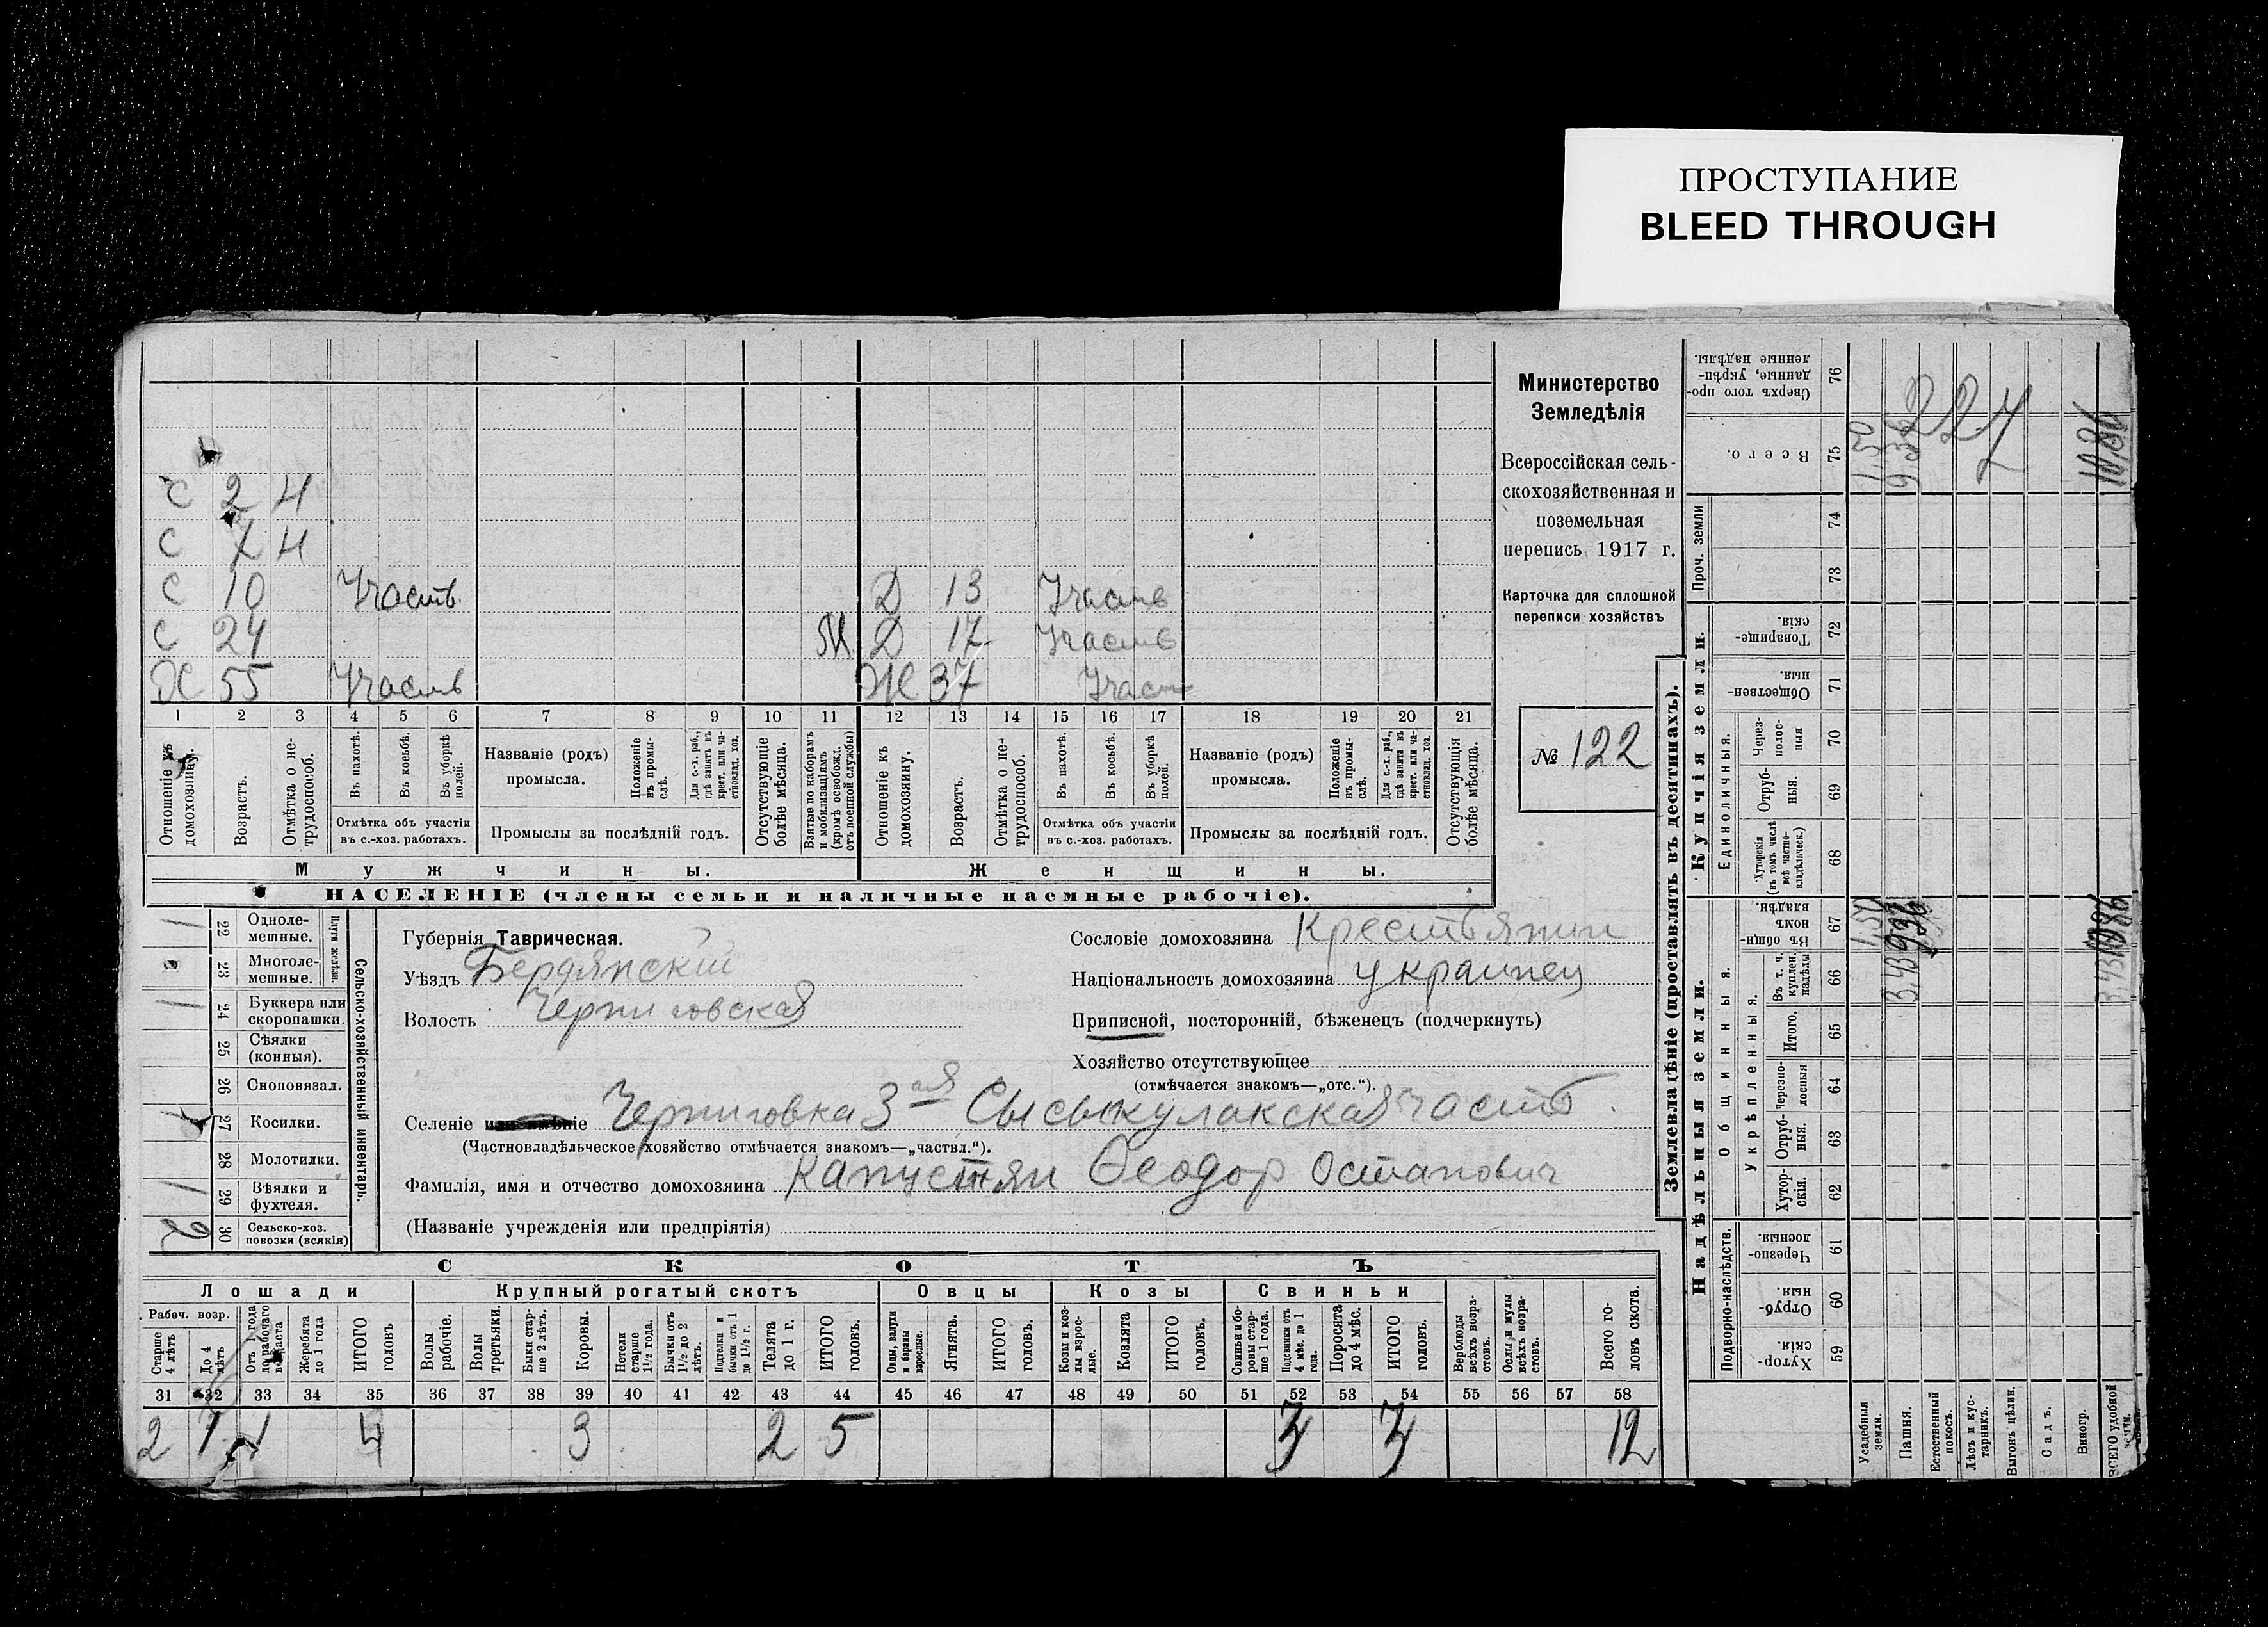 ПРОСТУПАНИЕ
BLEED THROUGH
С 2 Н
С 7 Н
С 10 Участв Д 13 Участв
С 24 М Д 17 Участв
Х 55 Участв Ж 37 Участ
1 2 3 4 5 6 7 8 9 10 11 12 13 14 15 16 17 18 19 20 21
Отношеніе къ домохозяину.
Возрастъ.
Отмѣтка о нетрудоспособ.
Въ пахотѣ.
Въ косьбѣ.
Въ уборкѣ полей.
Отмѣтка объ участіи въ с.-хоз. работахъ.
Названіе (родъ) промысла.
Положеніе въ промыслѣ.
Для с.-х. раб., гдѣ занятъ въ крест. или частновлад. хоз.
Промыслы за послѣдній годъ.
Отсутствующіе болѣе мѣсяца.
Взятые по наборамъ и мобилизаціямъ (кромѣ освобожд. отъ военной службы)
Отношеніе къ домохозяину.
Возрастъ.
Отмѣтка о нетрудоспособ.
Въ пахотѣ.
Въ косьбѣ.
Въ уборкѣ полей.
Отмѣтка объ участіи въ с.-хоз. работахъ.
Названіе (родъ) промысла.
Положеніе въ промыслѣ.
Для с.-х. раб., гдѣ занята въ крест. или частновлад. хоз.
Промыслы за послѣдній годъ.
Отсутствующія болѣе мѣсяца.
Мужчины. Женщины.
НАСЕЛЕНІЕ (члены семьи и наличные наемные рабочіе).
Министерство
Земледѣлія
Всероссійская сель-
скохозяйственная и
поземельная
перепись 1917 г.
Карточка для сплошной
переписи хозяйствъ
№ 122
Сельско-хозяйственный инвентарь.
Плуги желѣзн.
/ 22 Одноле-
мешные.
23 Многоле-
мешные.
/ 24 Буккера или
скоропашки.
25 Сѣялки
(конныя).
26 Сноповязал.
27 Косилки.
28 Молотилки.
/ 29 Вѣялки и
фухтеля.
2 30 Сельско-хоз.
повозки (всякія)
Губернія Таврическая.
Уѣздъ Бердянскій
Волость Черниговская
Сословіе домохозяина Крестьянин
Національность домохозяина украинец
Приписной, посторонній, бѣженецъ (подчеркнуть)
Хозяйство отсутствующее
(отмѣчается знакомъ—„отс.“).
Селеніе Черниговка 3 ая Сысыкулакская часть.
(Частновладѣльческое хозяйство отмѣчается знакомъ—„частвл.“).
Фамилія, имя и отчество домохозяина Капустян Ѳеодор Остапович
(Названіе учрежденія или предпріятія)
СКОТЪ
Лошади Крупный рогатый скотъ Овцы Козы Свиньи
Рабоч. возр.
Старше 4 лѣтъ
До 4 лѣтъ
Отъ 1 года до рабочаго возраста
Жеребята до 1 года
ИТОГО головъ
Волы рабочіе.
Волы третьяки.
Быки старше 2 лѣтъ.
Коровы.
Нетели старше 1½ года.
Бычки отъ 1½ до 2 лѣтъ.
Подтелки и бычки отъ 1 до 1½ г.
Телята до 1 г.
ИТОГО головъ.
Овцы, валухи и бараны взрослые.
Ягнята.
ИТОГО головъ.
Козы и козлы взрослые.
Козлята
ИТОГО головъ.
Свиньи и боровы старше 1 года.
Подсвинки отъ 4 мѣс. до 1 года.
Поросята до 4 мѣс.
ИТОГО головъ.
Верблюды всѣхъ возрастовъ.
Ослы и мулы всѣхъ возрастовъ.
Всего головъ скота.
31 32 33 34 35 36 37 38 39 40 41 42 43 44 45 46 47 48 49 50 51 52 53 54 55 56 57 58
2 1 1 4 3 2 5 3 3 12
Землевладѣніе (проставлять въ десятинахъ).
Надѣльныя земли. Купчія земли.
Подворно-наслѣдств.
Общинныя.
Укрѣпленныя.
Единоличныя.
Проч. земли
59 Хуторскія.
60 Отрубныя.
61 Черезполосныя.
62 Хуторскія.
63 Отрубныя.
64 Черезполосныя
65 Итого.
66 Въ т. ч. куплен. надѣлы
67 Въ общинномъ владѣн.
68 Хуторскія (въ томъ числѣ всѣ частновладѣльческ.)
69 Отрубныя.
70 Черезполосныя
71 Общественныя.
72 Товарищескія.
73 74
75 Всего.
76 Сверхъ того проданные, укрѣпленные надѣлы.
Усадебныя земли.
Пашня.
Естественный покосъ.
Лѣсъ и кустарникъ.
Выгонъ цѣлин.
Садъ.
Виногр.
ВСЕГО удобной земли.
1,50
9.36
227
10.86